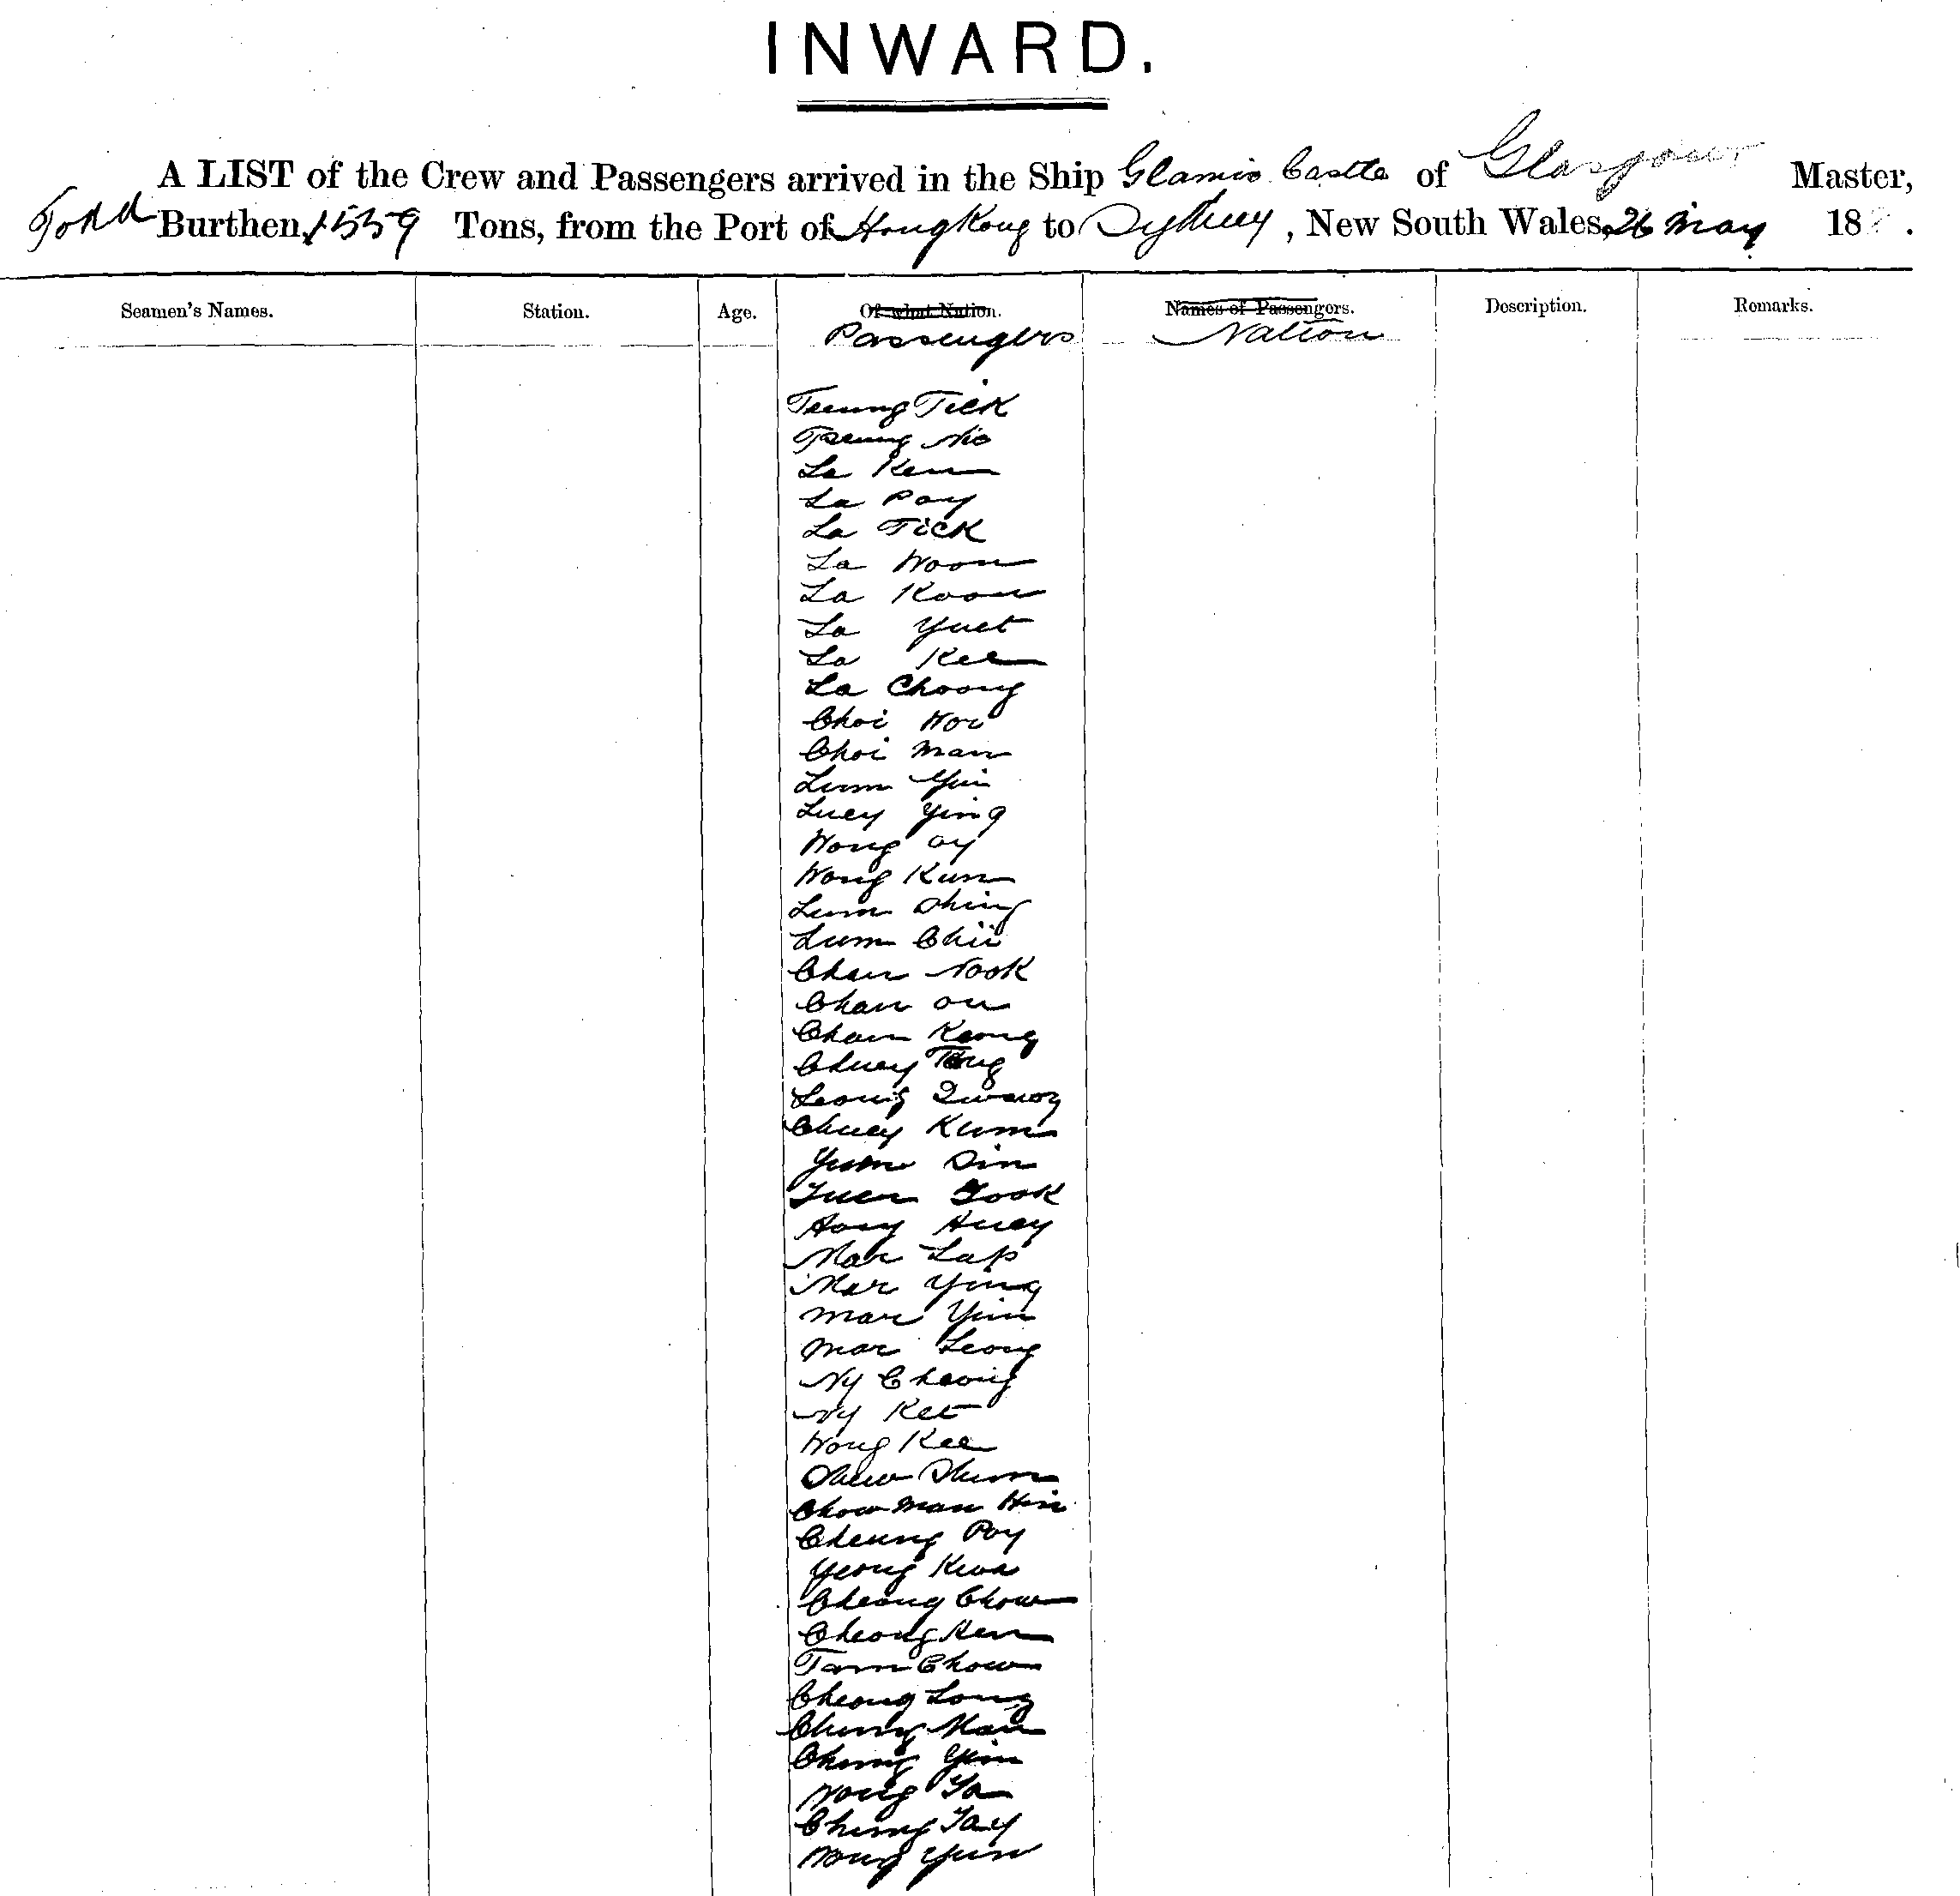 INWARD.
A LIST of the Crew and Passengers arrived in the Ship Glamis Castle of Glasgow Master,
Todd Burthen, 1559 Tons, from the Port of HongKong to Sydney, New South Wales, 26 May 188 .
Seamen's Names. Station. Age. Of what Nation. Names of Passengers. Description. Remarks.
Passengers Nation
Tseung Tick
Tseung
La Ken
La Poy
La Tick
La Woon
La Koon
La Yuet
La Kee
La Choong
Choi Hoi
Choi Man
Lum Yui
Luey Ying
Wong oy
Wong Kum
Lum Shing
Lum Chii
Chan Nook
Chan on
Chan Keong
Chuey Tong
Leong
Chuey Kum
Yuen Sin
Yuen Fook
Hoey
Mar Lap
Mar Ying
Mar Yim
Mar Leong
Ny Cheong
Ny Ket
Wong Kee
Shum
Chow Man Hin
Cheung Poy
Yeong Kwa
Cheong Chow
Cheong Ken
Tam Chow
Cheong Long
Chung Man
Chung Yim
Wong Ya
Chung Tay
Yun